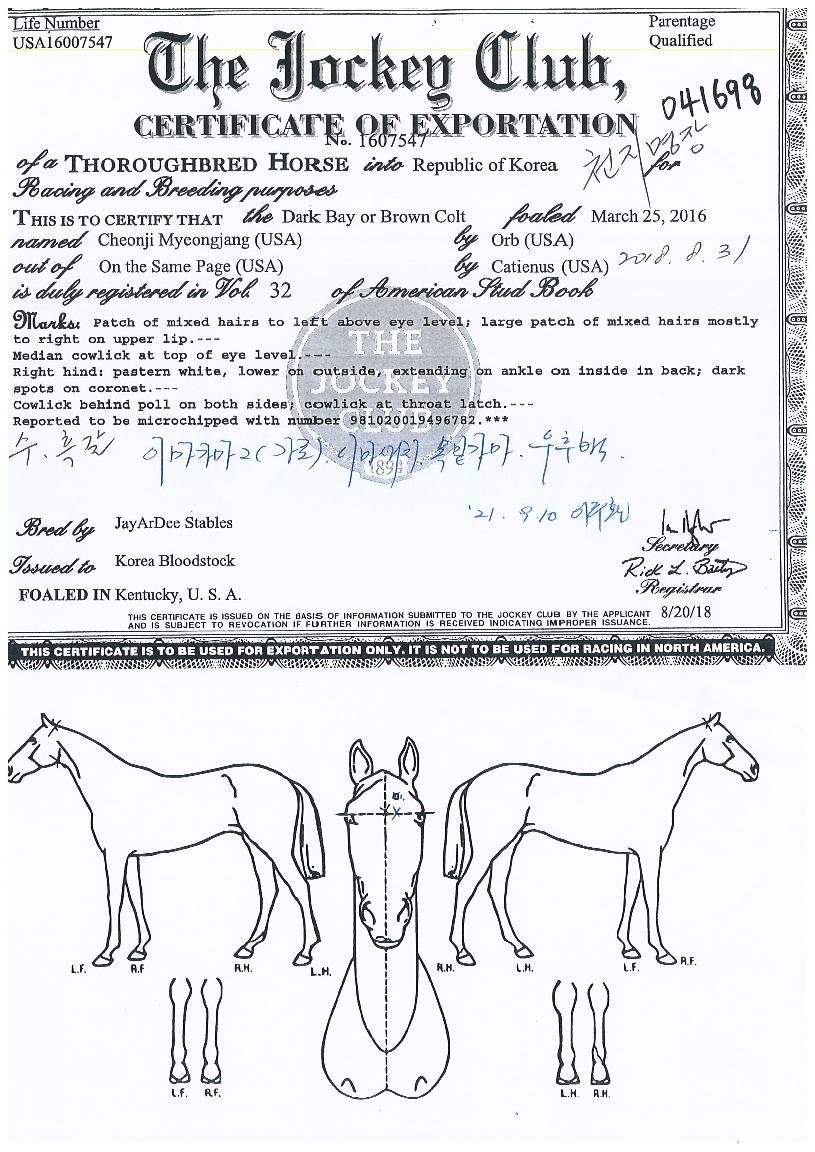 Life Number
USA16007547
Parentage
Qualified
The Jockey Club,
041698
CERTIFICATE OF EXPORTATION
No. 1607547
천지명장
of a THOROUGHBRED HORSE into Republic of Korea for
Racing and Breeding purposes
THIS IS TO CERTIFY THAT the Dark Bay or Brown Colt foaled March 25, 2016
named Cheonji Myeongjang (USA) by Orb (USA)
out of On the Same Page (USA) by Catienus (USA) 2018. 8. 31
is duly registered in Vol. 32 of American Stud Book
Marks: Patch of mixed hairs to left above eye level; large patch of mixed hairs mostly
to right on upper lip.---
Median cowlick at top of eye level.---
Right hind: pastern white, lower on outside, extending on ankle on inside in back; dark
spots on coronet.---
Cowlick behind poll on both sides; cowlick at throat latch.---
Reported to be microchipped with number 981020019496782.***
THE
JOCKEY
CLUB
1894
수. 흑갈
이마가마2(가로). 목밑가마. 우후백.
'21. 9.10
Bred by JayArDee Stables
Secretary
Issued to Korea Bloodstock
Rick L. Bailey
Registrar
FOALED IN Kentucky, U. S. A.
THIS CERTIFICATE IS ISSUED ON THE BASIS OF INFORMATION SUBMITTED TO THE JOCKEY CLUB BY THE APPLICANT
AND IS SUBJECT TO REVOCATION IF FURTHER INFORMATION IS RECEIVED INDICATING IMPROPER ISSUANCE.
8/20/18
THIS CERTIFICATE IS TO BE USED FOR EXPORTATION ONLY. IT IS NOT TO BE USED FOR RACING IN NORTH AMERICA.
L.F. R.F R.H. L.H. R.H. L.H. L.F. R.F.
L.F. R.F. L.H. R.H.